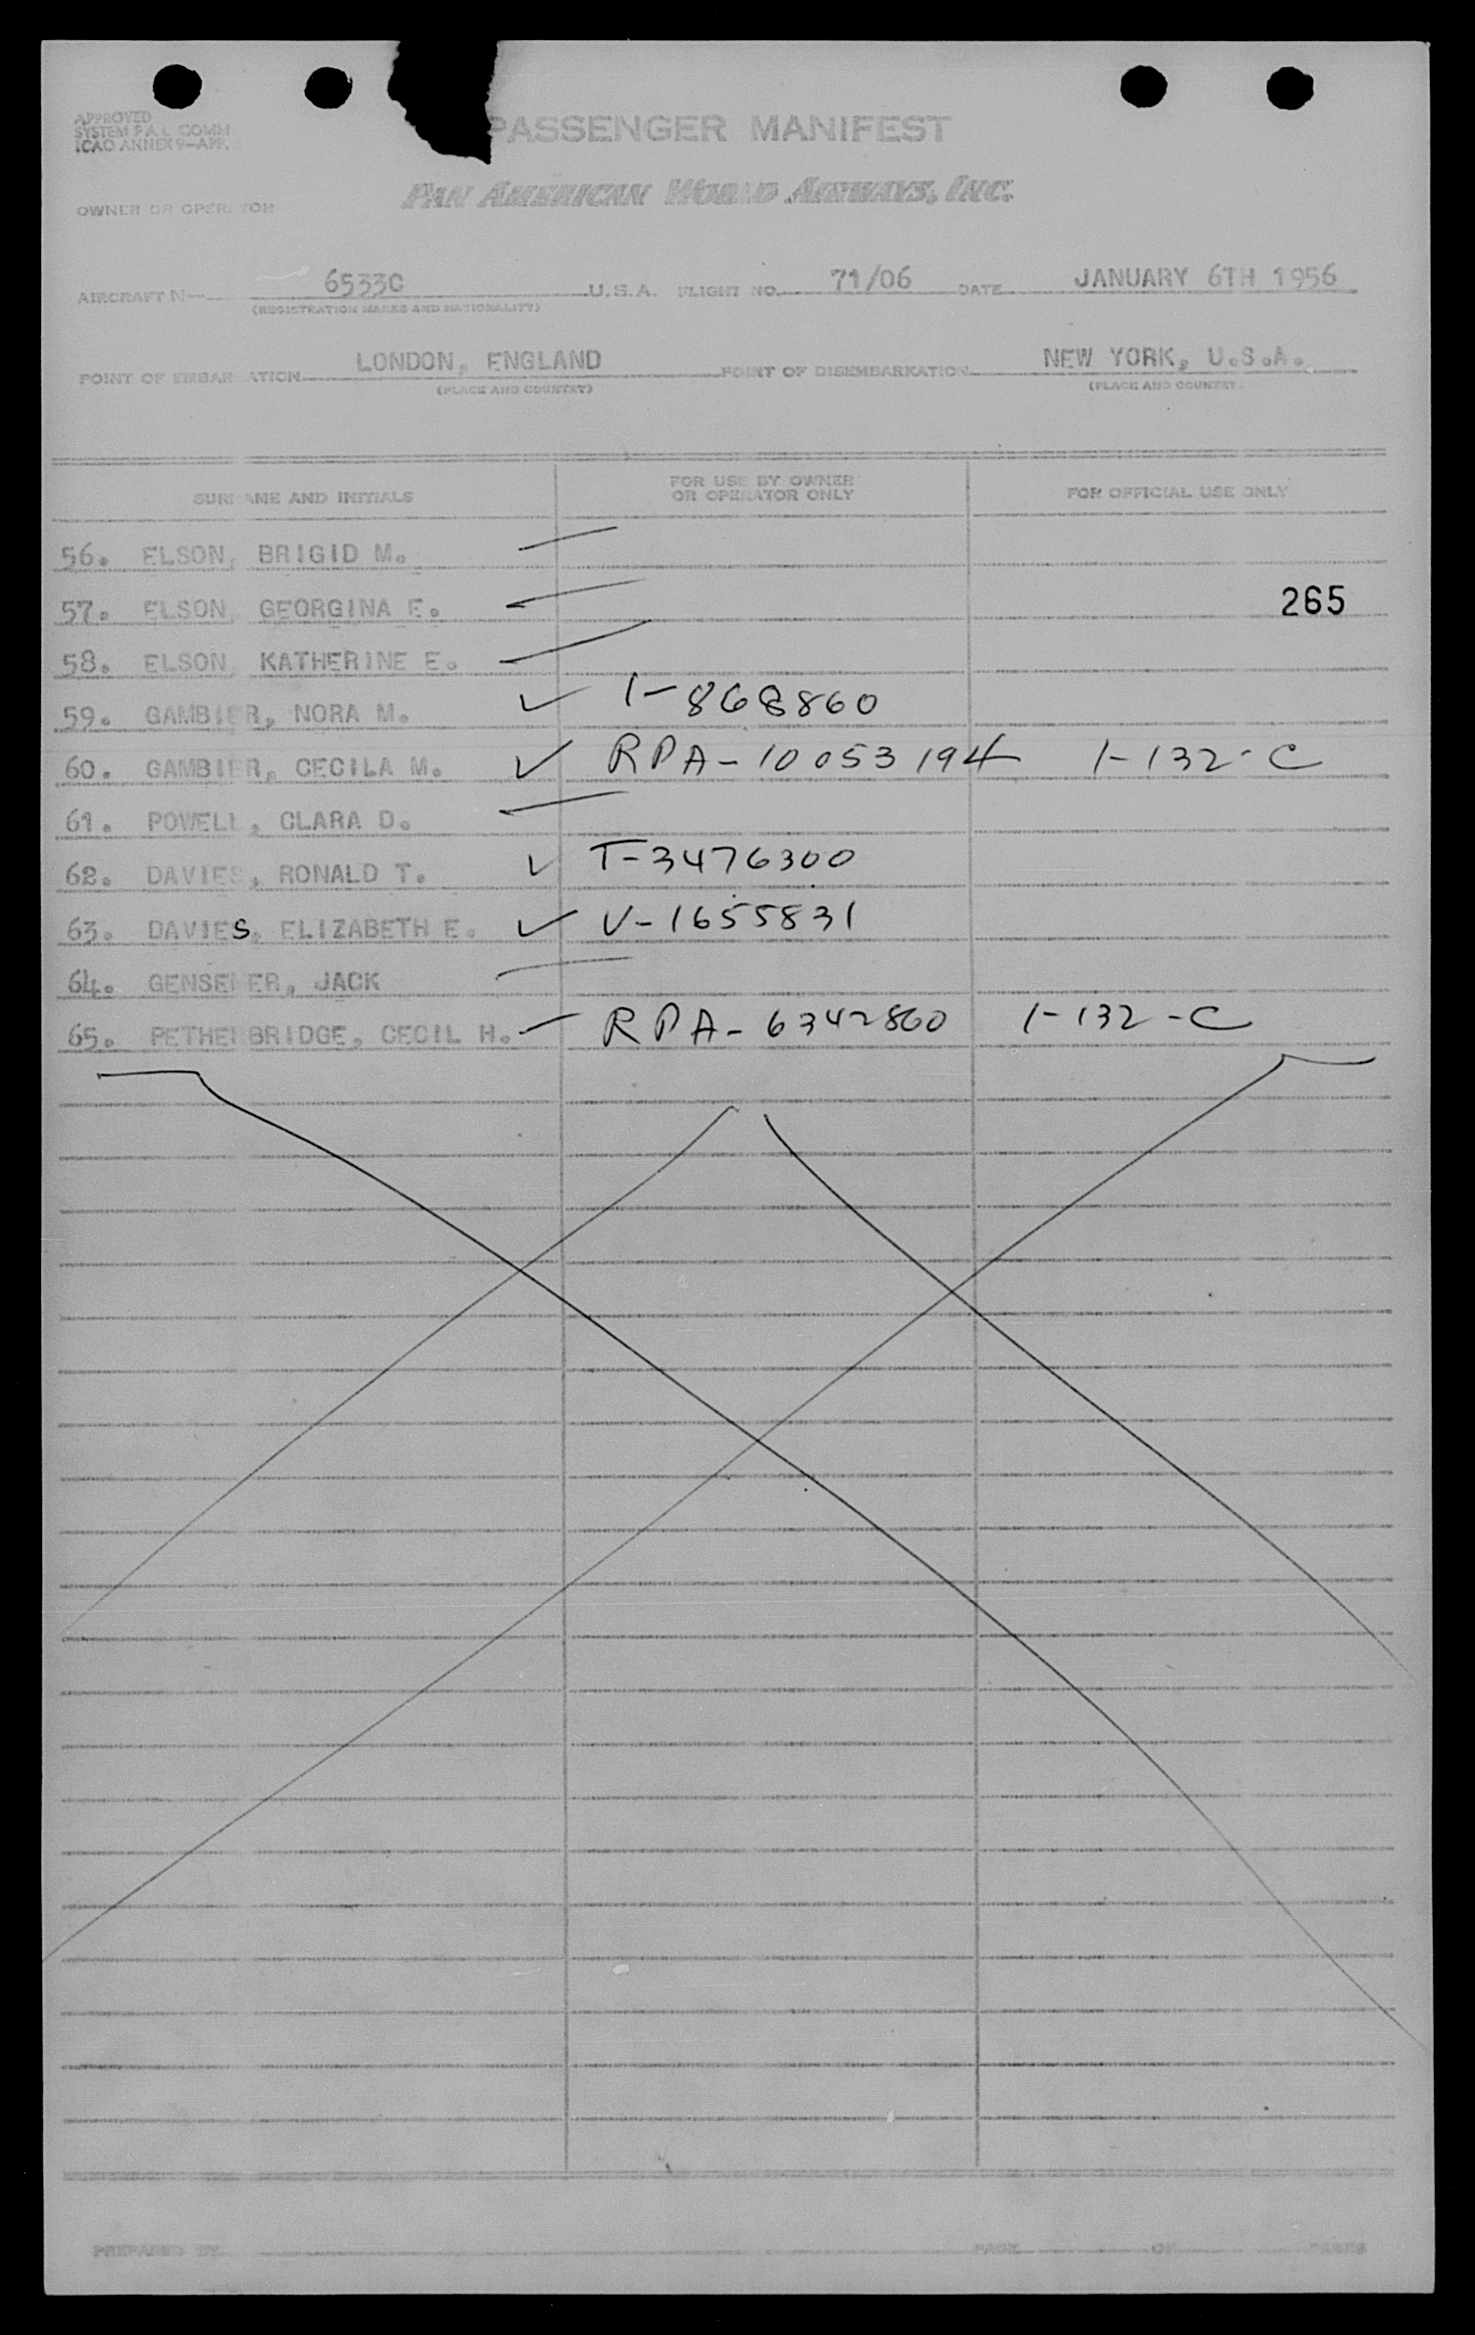 APPROVED
SYSTEM P.A.L. COMM
ICAO ANNEX 9—APP.
PASSENGER MANIFEST
OWNER OR OPERATOR PAN AMERICAN WORLD AIRWAYS, INC.
AIRCRAFT N— 6533C U.S.A. FLIGHT NO. 71/06 DATE JANUARY 6TH 1956
(REGISTRATION MARKS AND NATIONALITY)
POINT OF EMBARKATION LONDON, ENGLAND POINT OF DISEMBARKATION NEW YORK, U.S.A.
(PLACE AND COUNTRY) (PLACE AND COUNTRY)
SURNAME AND INITIALS FOR USE BY OWNER OR OPERATOR ONLY FOR OFFICIAL USE ONLY
56. ELSON, BRIGID M.
57. ELSON, GEORGINA E. 265
58. ELSON, KATHERINE E.
59. GAMBIER, NORA M. ✓ 1-868860
60. GAMBIER, CECILA M. ✓ RPA-10053194 1-132-C
61. POWELL, CLARA D.
62. DAVIES, RONALD T. ✓ T-3476300
63. DAVIES, ELIZABETH E. ✓ V-1655831
64. GENSEMER, JACK
65. PETHERBRIDGE, CECIL H. RPA-6342860 1-132-C
PREPARED BY PAGE OF PAGES